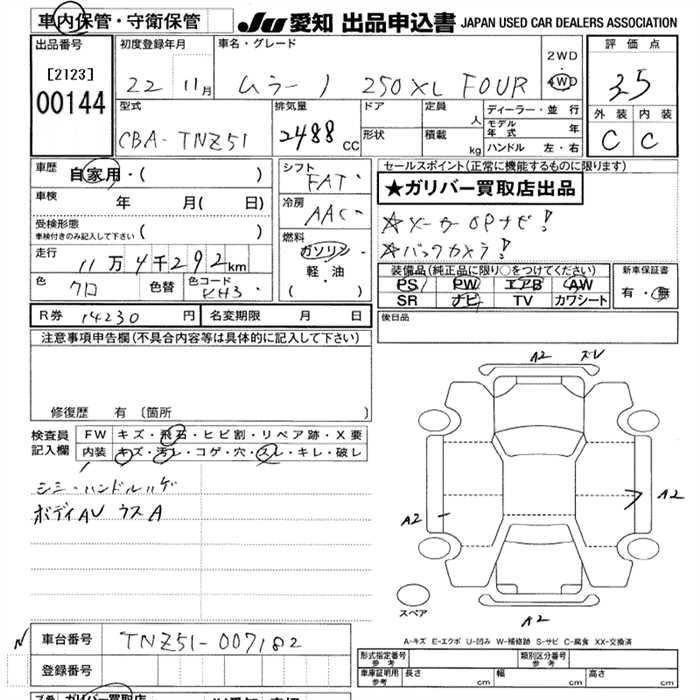 車内保管・守衛保管 JU 愛知 出品申込書 JAPAN USED CAR DEALERS ASSOCIATION
出品番号 [2123] 00144
初度登録年月 22 11月
車名・グレード ムラーノ 250XL FOUR 2WD・4WD
評価点 3.5
外装 C 内装 C
型式 CBA-TNZ51
排気量 2488 CC
ドア 形状
定員 人 積載 kg
ディーラー・並行
モデル年式 年
ハンドル 左・右
車歴 自家用・( )
車検 年 月( 日)
受検形態 車検付きのみ記入して下さい ( )
走行 11万4千292km
色 クロ 色替 色コード KH3
シフト FAT
冷房 AAC
燃料 ガソリン・軽油・( )
セールスポイント(正常に機能するものに限ります)
★ガリバー買取店出品
☆メーカーOPナビ!
☆バックカメラ!
装備品(純正品に限り○をつけてください)
PS PW エアB AW
SR ナビ TV カワシート
新車保証書 有・無
R券 14230 円 名変期限 月 日
後日品
注意事項申告欄(不具合内容等は具体的に記入して下さい)
修復歴 有 〔箇所 〕
検査員記入欄
FW キズ・飛石・ヒビ割・リペア跡・X要
内装 キズ・汚レ・コゲ・穴・スレ・キレ・破レ
シミ・ハンドルハゲ
ボディAU ウスA
A2 ズレ
A2
A2
A2
スペア
A-キズ E-エクボ U-凹み W-補修跡 S-サビ C-腐食 XX-交換済
N 車台番号 TNZ51-007182
登録番号
型式指定番号 参考 類別区分番号 参考
車庫証明用 参考 長さ cm 幅 cm 高さ cm
ガリバー買取店